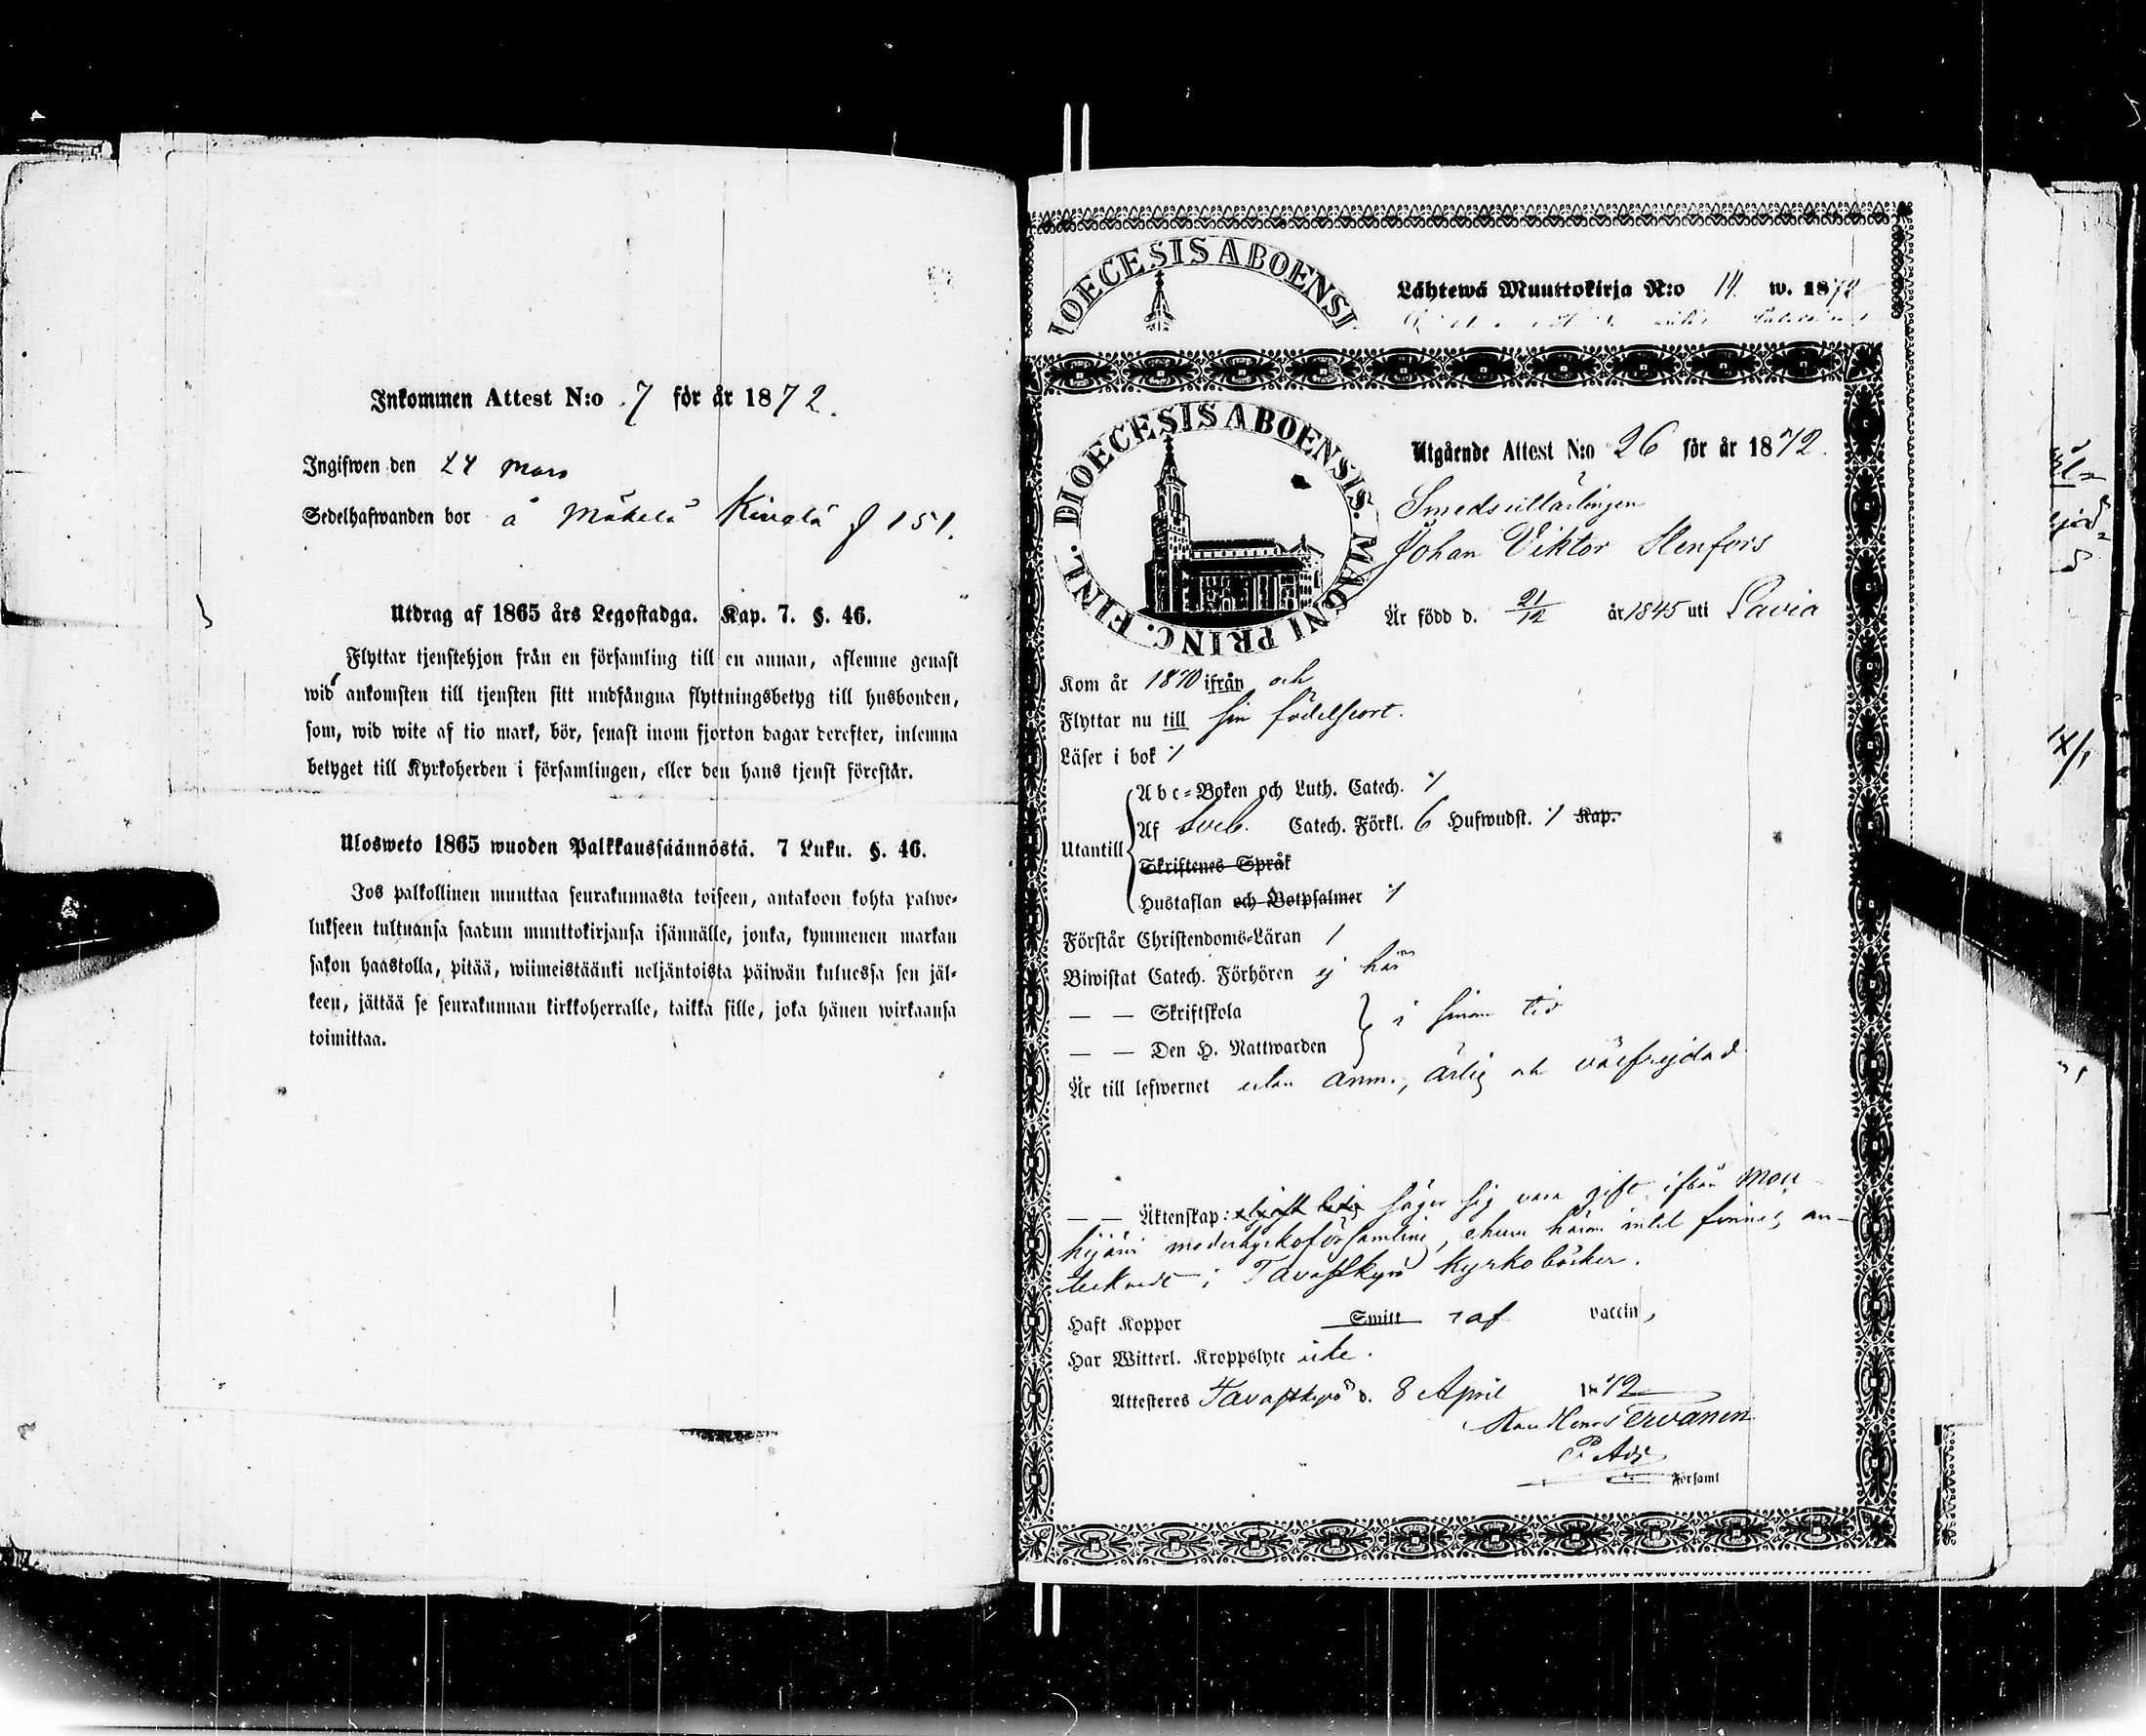 Inkommen Attest N:o 7 för år 1872.
Ingifwen den 24 mars
Sedelhafwanden bor å Mäkelä Kivelä f 151.
Utdrag af 1865 års Legostadga. Kap. 7. §. 46.
Flyttar tjenstehjon från en församling till en annan, aflemne genast
wid ankomsten till tjensten sitt undfångna flyttningsbetyg till husbonden,
som, wid wite af tio mark, bör, senast inom fjorton dagar derefter, inlemna
betyget till Kyrkoherden i församlingen, eller den hans tjenst förestår.
Ulosweto 1865 wuoden Palkkaussäännöstä. 7 Luku. §. 46.
Jos palkollinen muuttaa seurakunnasta toiseen, antakoon kohta palwe-
lukseen tultuansa saadun muuttokirjansa isännälle, jonka, kymmenen markan
sakon haastolla, pitää, wiimeistäänki neljäntoista päiwän kuluessa sen jäl-
keen, jättää se seurakunnan kirkkoherralle, taikka sille, joka hänen wirkaansa
toimittaa.
DIOECESIS ABOENSI
Lähtewä Muuttokirja N:o 14 w. 1872
DIOECESIS ABOENSIS. MAGNI PRINC. FINL.
Utgående Attest N:o 26 för år 1872.
Smedsutlärlingen
Johan Viktor Stenfors
Är född d. 21/12 år 1845 uti Lavia
Kom år 1870 ifrån och
Flyttar nu till sin födelseort.
Läser i bok ⁒
Utantill
Abc-Boken och Luth. Catech. ⁒
Af Sveb. Catech. Förkl. 6 Hufwudst. ⁒ Kap.
Skriftenes Språk
Hustaflan och Botpsalmer ⁒
Förstår Christendoms-Läran /
Biwistat Catech. Förhören ej här
— — Skriftskola
— — Den H. Nattwarden
i sinom tid
Är till lefwernet utan anm., ärlig och välfrejdad
— — Äktenskap: säger sig vara gift ifrån Mou
hijärvi moderkyrkoförsamling, ehuru härom intet finnes an-
tecknadt i Tavastkyrö kyrkoböcker.
Haft Koppor Smitt af vaccin,
Har Witterl. Kroppslyte icke.
Attesteres Tavastkyrö d. 8 April 1872
Tervanen
P. Adj.
Församl